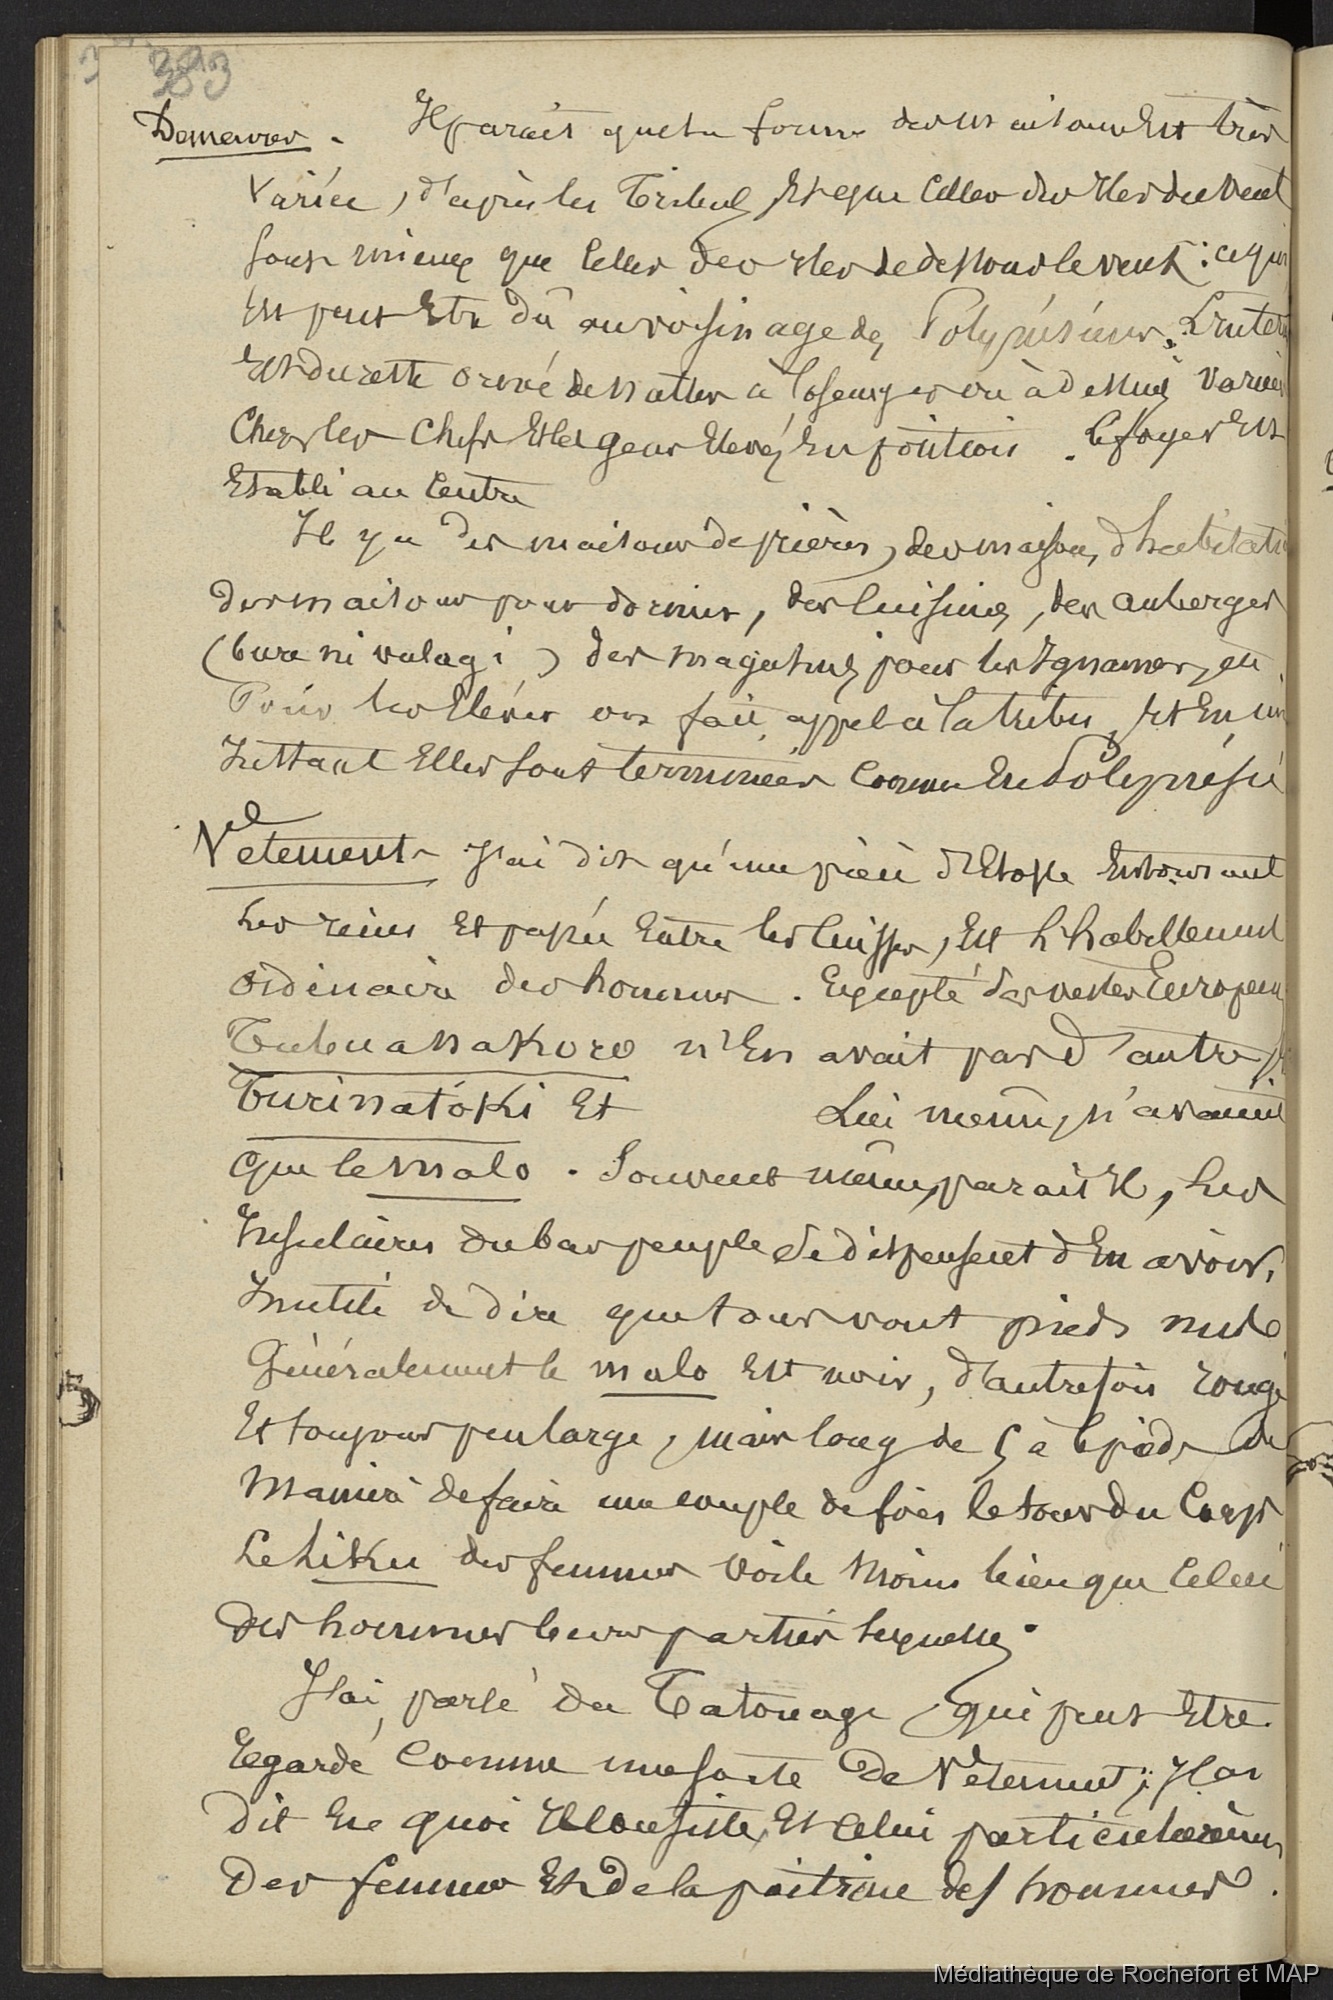 383
Demeures. Il parait que la forme des maisons Est très
variée, d'après les Tribus, Et que Celles des Iles du Vent
sont mieux que Celles des Iles de dessous le vent : ce qui
Est peut Etre dû au voisinage des Polynésiens. L'inter
Est du reste orné de nattes à losanges ou à dessins variés
Chez les Chefs Et les gens Elevés En position. Le foyer Est
Etabli au Centre
Il y a des maisons de prières, des maisons d'habitati
des maisons pour dormir, des Cuisines, des auberges
(bure ni vulagi) des magasins pour les Ignames, etc
Pour les Elever on fait appel à la tribu, Et En un
Instant Elles sont terminées Comme En Polynésie
Vêtement J'ai dit qu'une pièce d'Etoffe Entourant
Les reins Et passée Entre les Cuisses, Est l'habillement
ordinaire des hommes. Excepté des vestes Européen
Tubuanakoro n'En avait pas d'autre,
Turinatoki Et Lui même, n'avaient
que le malo. Souvent même, parait Il, Les
Insulaires du bas peuple se dispensent d'En avoir,
Inutile de dire que tous vont pieds nuds
Généralement le malo Est noir, d'autrefois rouge
Et toujours peu large, mais long de 5 à 6 pieds de
Manière de faire une couple de fois le tour du Corps
Le liku des femmes voile Moins bien que Celui
des hommes leurs parties sexuelles.
J'ai parlé du Tatouage, qui peut Etre
Regardé Comme une sorte de Vêtement; J'ai
dit En quoi Il Consiste, Et Celui particulièrem
des femmes Et de la poitrine des hommes.
Médiathèque de Rochefort et MAP